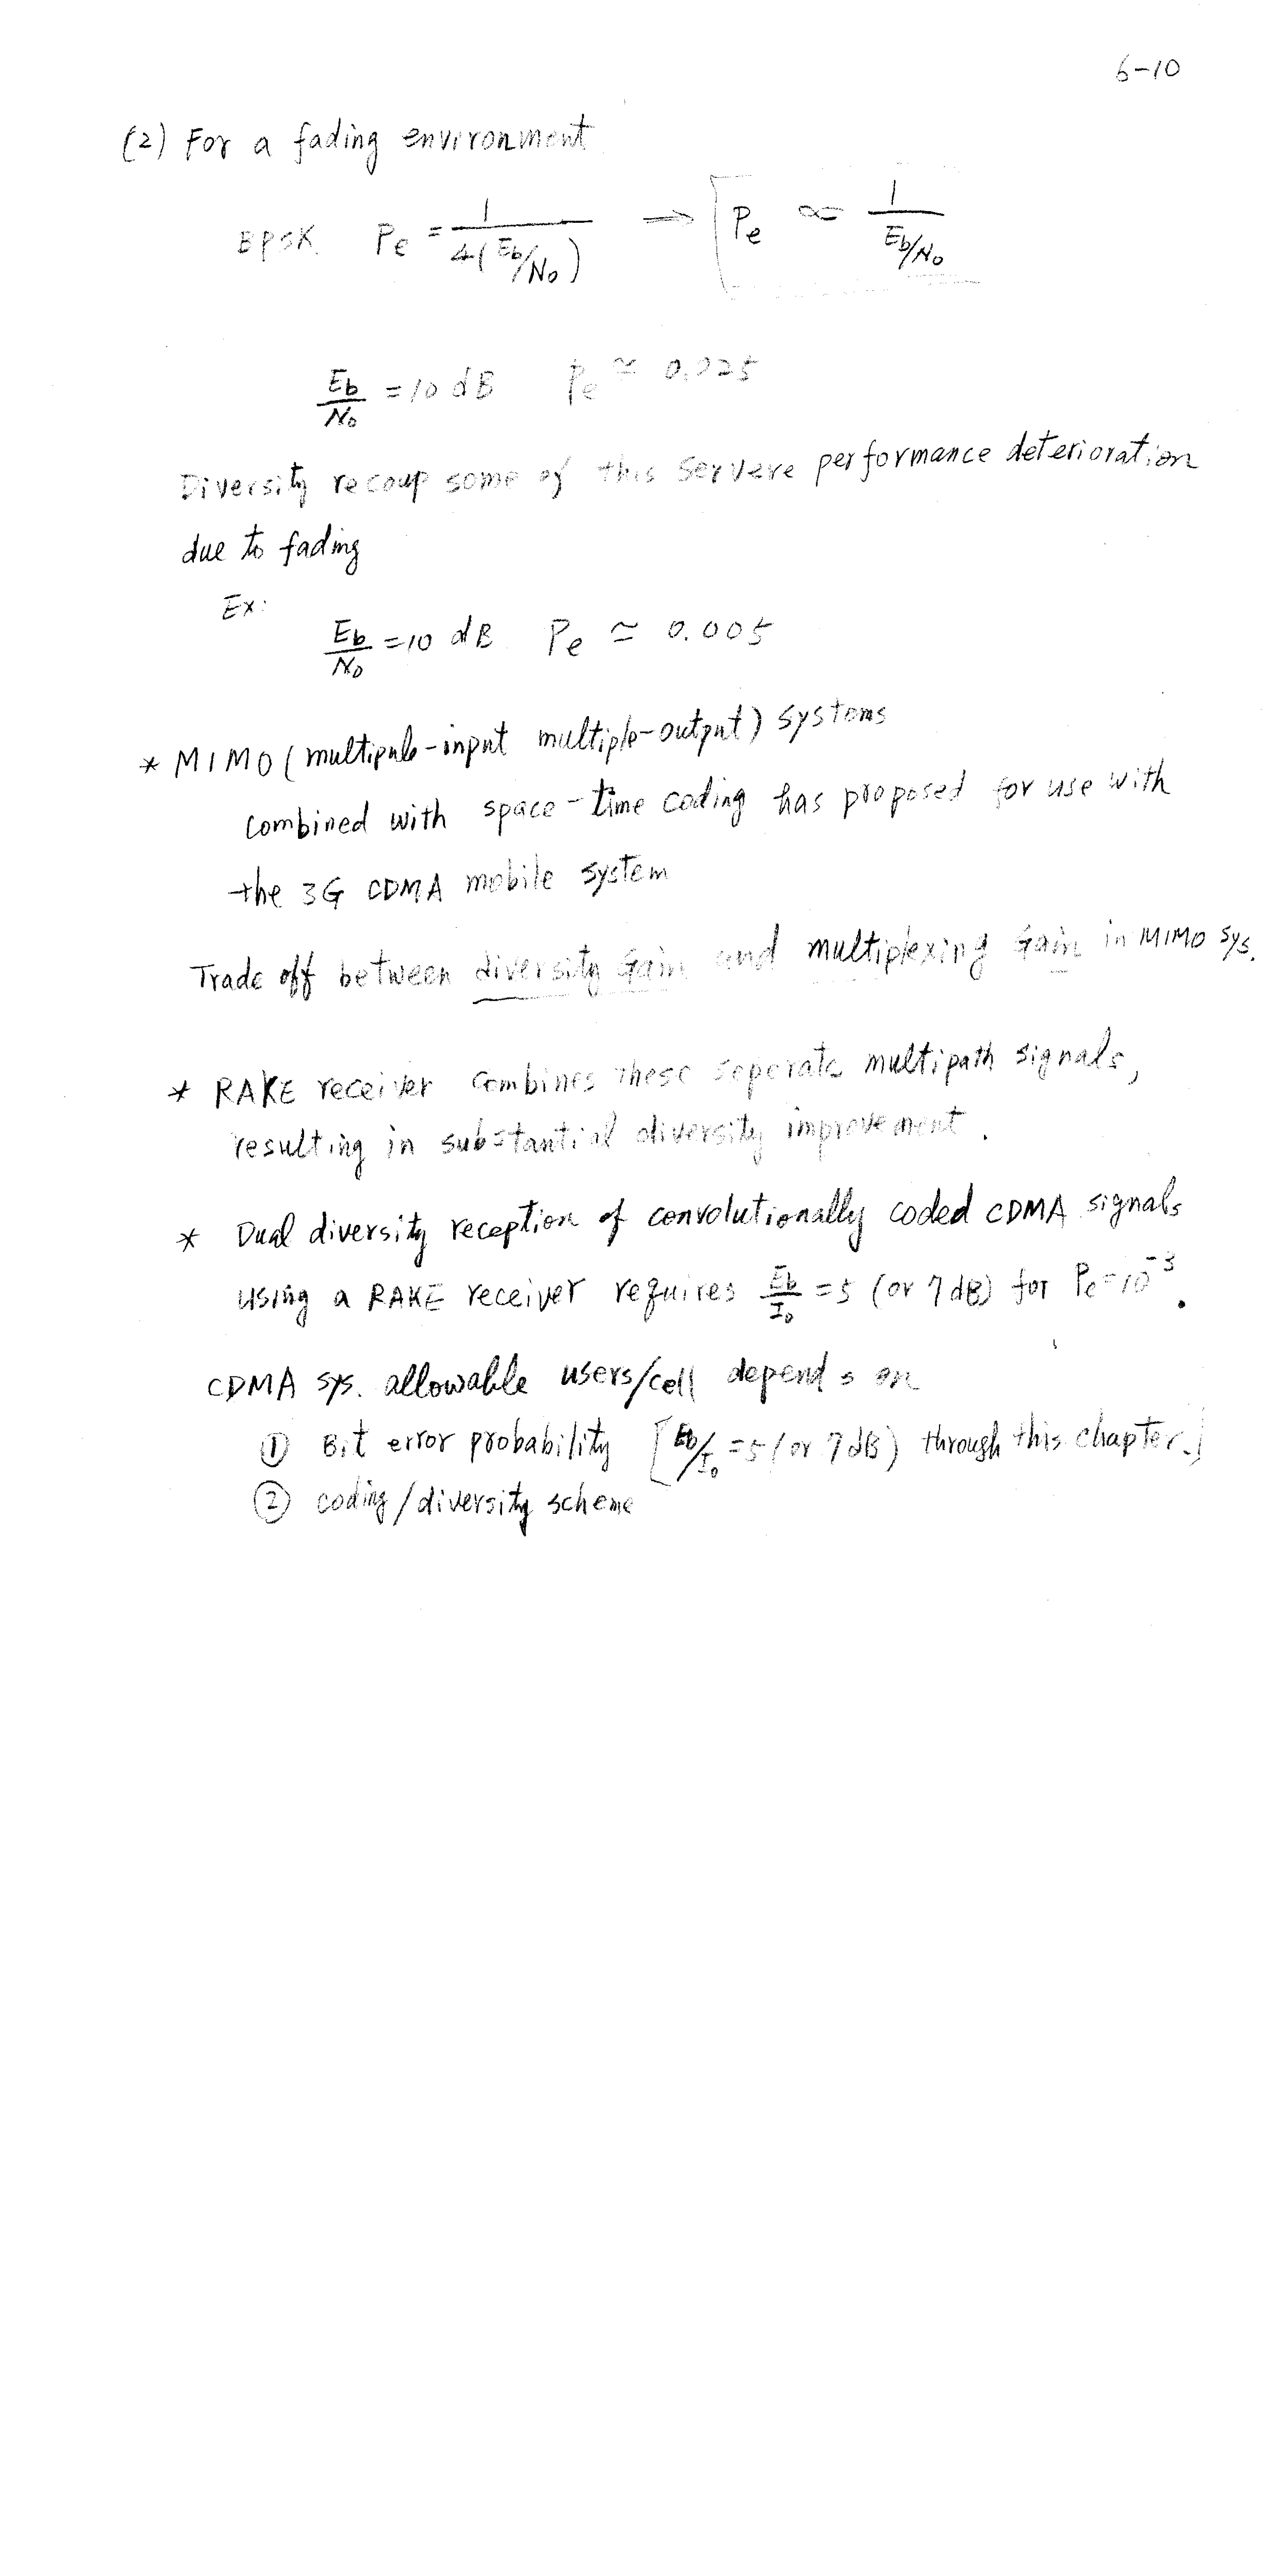 6-10
(2) For a fading environment
BPSK Pe = 1/(4(Eb/No)) → [Pe ∝ 1/(Eb/No)
Eb/No = 10 dB Pe ≃ 0.025
Diversity recoup some of this Servere performance deterioration
due to fading
Ex:
Eb/No = 10 dB Pe ≃ 0.005
* MIMO (multipule-input multiple-output) systems
combined with space-time coding has proposed for use with
the 3G CDMA mobile system
Trade off between diversity Gain and multiplexing Gain in MIMO sys.
* RAKE receiver combines these seperate multipath signals,
resulting in substantial diversity improvement.
* Dual diversity reception of convolutionally coded CDMA signals
using a RAKE receiver requires Eb/Io = 5 (or 7 dB) for Pe = 10^-3.
CDMA sys. allowable users/cell depends on
① Bit error probability [Eb/Io = 5 (or 7 dB) through this chapter.]
② coding/diversity scheme